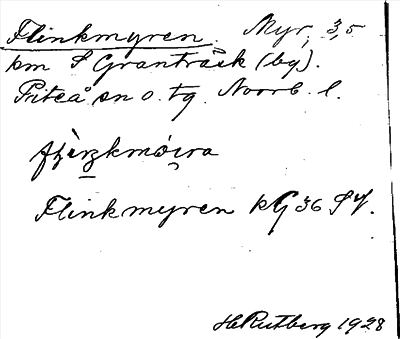 Flinkmyren. Myr, 3,5
km S Granträsk (by).
Piteå sn o. tg. Norrb. l.
Flinkmyren kG 36 SV.
H. Rutberg 1928